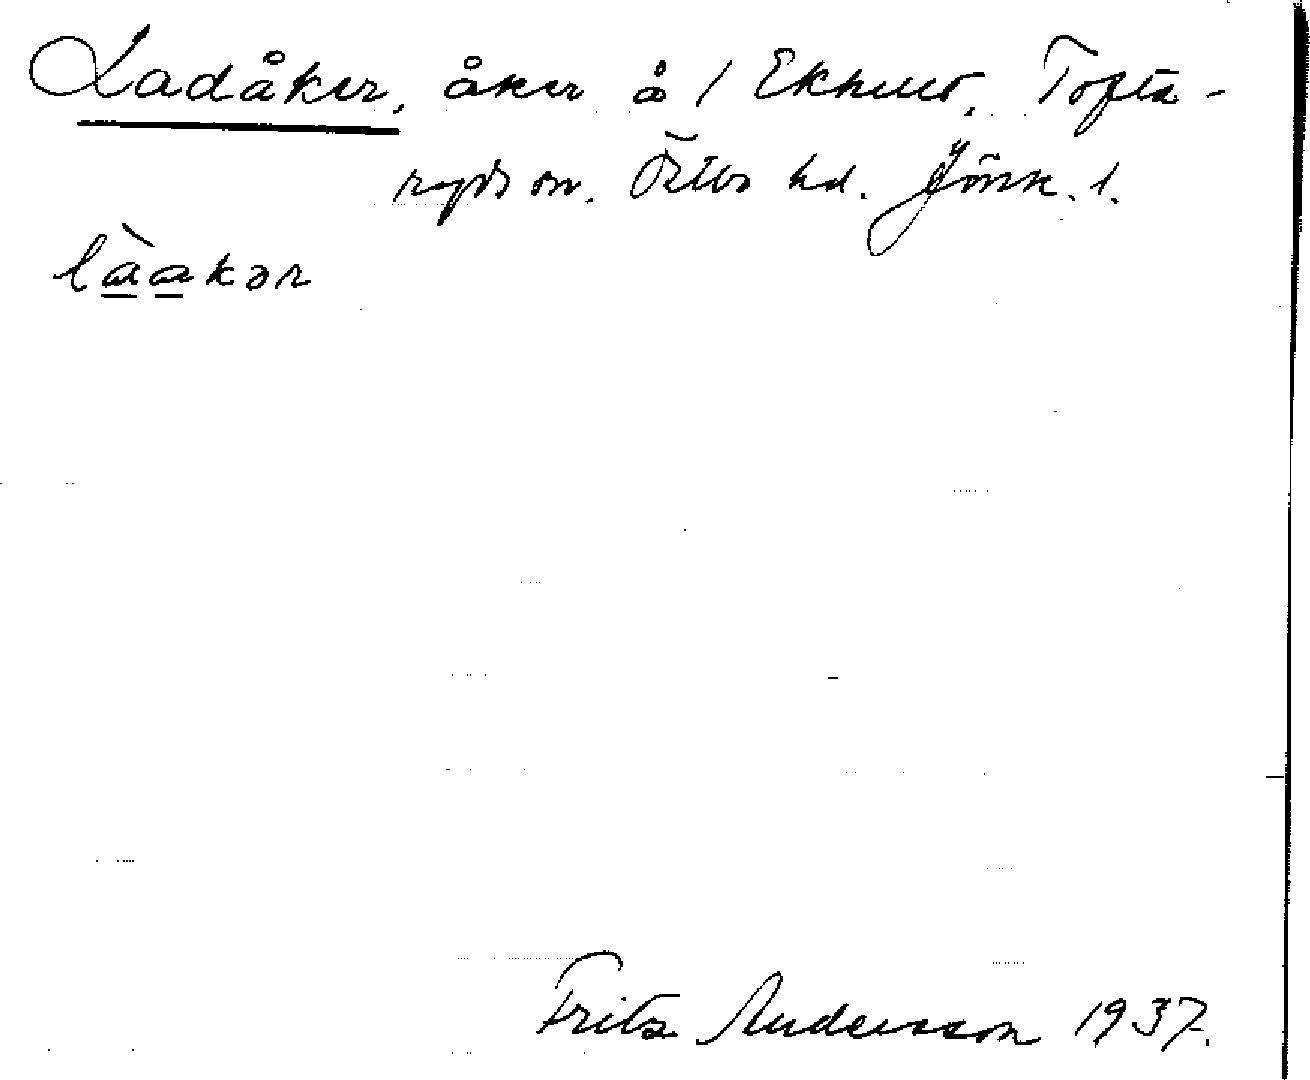 Ladåker, åker å 1 Ekhult, Tofta-
ryds sn. Östbo hd. Jönk. l.
làakər
Fritz Andersson 1937.